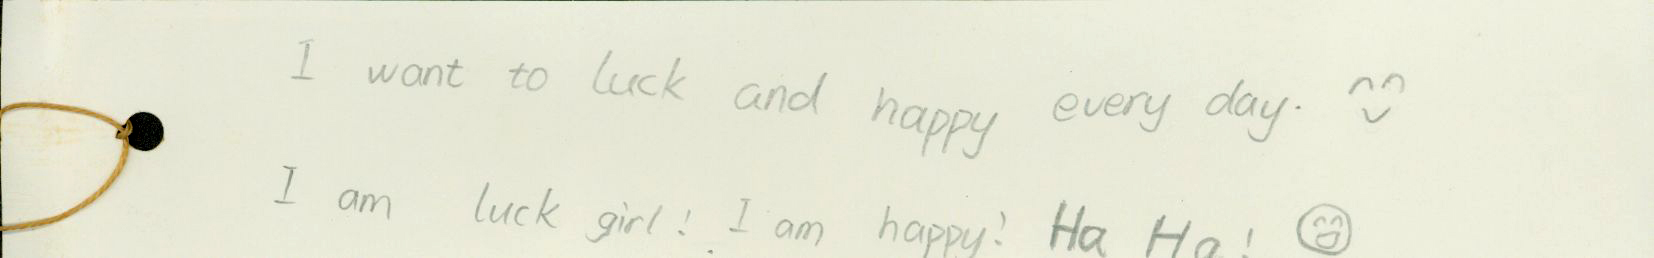 I want to luck and happy every day. ^^
I am luck girl! I am happy! Ha Ha!